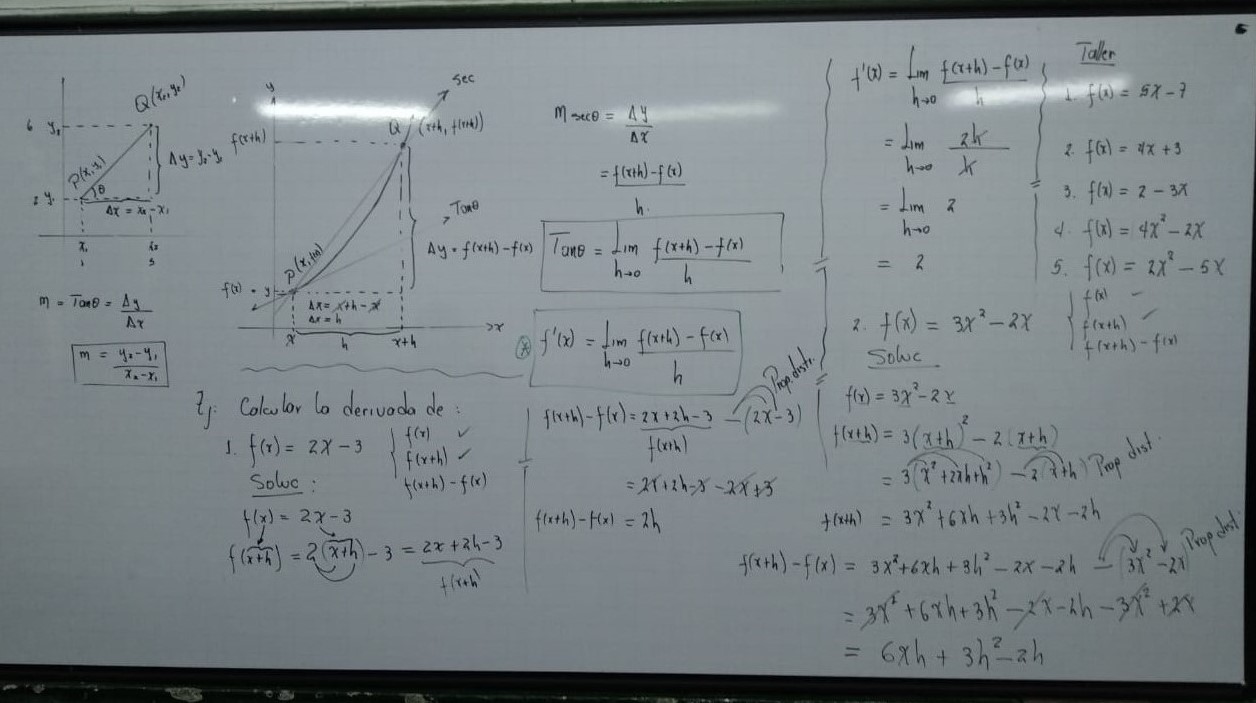 Q(x₂, y₂)
6 y₂
P(x, y)
θ
Δy = y₂ - y₁
2 y₁
Δx = x₂ - x₁
x₁ x₂
1 5
m = Tanθ = Δy/Δx
m = (y₂ - y₁)/(x₂ - x₁)
y
sec
Q (x+h, f(x+h))
f(x+h)
Tanθ
P(x, f(x))
Δy = f(x+h) - f(x)
f(x) = y
Δx = x+h - x
Δx = h
x h x+h
x
m secθ = Δy/Δx
= (f(x+h) - f(x))/h.
Tanθ = Lim h→0 (f(x+h) - f(x))/h
* f'(x) = Lim h→0 (f(x+h) - f(x))/h
Ej: Calcular la derivada de:
1. f(x) = 2x - 3
f(x) ✓
f(x+h) ✓
f(x+h) - f(x)
Soluc:
f(x) = 2x - 3
f(x+h) = 2(x+h) - 3 = 2x + 2h - 3
f(x+h)
Prop distr.
f(x+h) - f(x) = 2x + 2h - 3 - (2x - 3)
f(x+h)
= 2x + 2h - 3 - 2x + 3
f(x+h) - f(x) = 2h
f'(x) = Lim h→0 (f(x+h) - f(x))/h
= Lim h→0 2h/h
= Lim h→0 2
= 2
2. f(x) = 3x² - 2x
Soluc
f(x) = 3x² - 2x
f(x+h) = 3(x+h)² - 2(x+h)
= 3(x² + 2xh + h²) - 2(x+h) Prop dist.
f(x+h) = 3x² + 6xh + 3h² - 2x - 2h
f(x+h) - f(x) = 3x² + 6xh + 3h² - 2x - 2h - (3x² - 2x) Prop dist.
= 3x² + 6xh + 3h² - 2x - 2h - 3x² + 2x
= 6xh + 3h² - 2h
Taller
1. f(x) = 5x - 7
2. f(x) = 4x + 3
3. f(x) = 2 - 3x
4. f(x) = 4x² - 2x
5. f(x) = 2x² - 5x
f(x) ✓
f(x+h) ✓
f(x+h) - f(x)